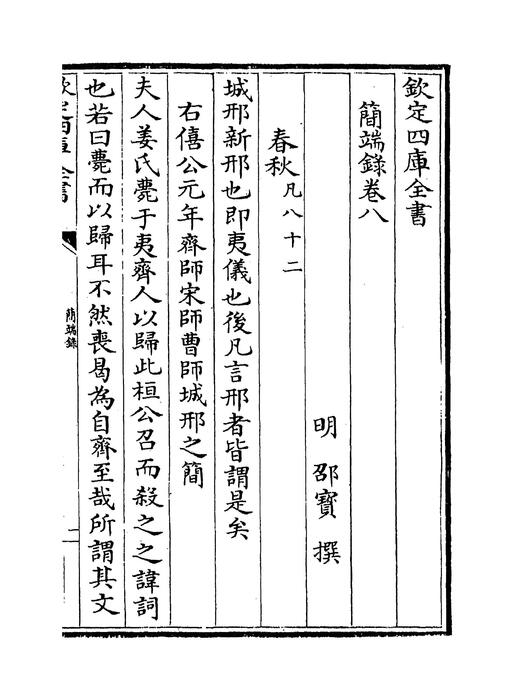 欽定四庫全書
簡端錄卷八
明 邵寶 撰
春秋凡八十二
城邢新邢也即夷儀也後凡言邢者皆謂是矣
右僖公元年齊師宋師曹師城邢之簡
夫人姜氏薨于夷齊人以歸此桓公召而殺之之諱詞
也若曰薨而以歸耳不然喪曷為自齊至哉所謂其文
欽定四庫全書
簡端錄
一